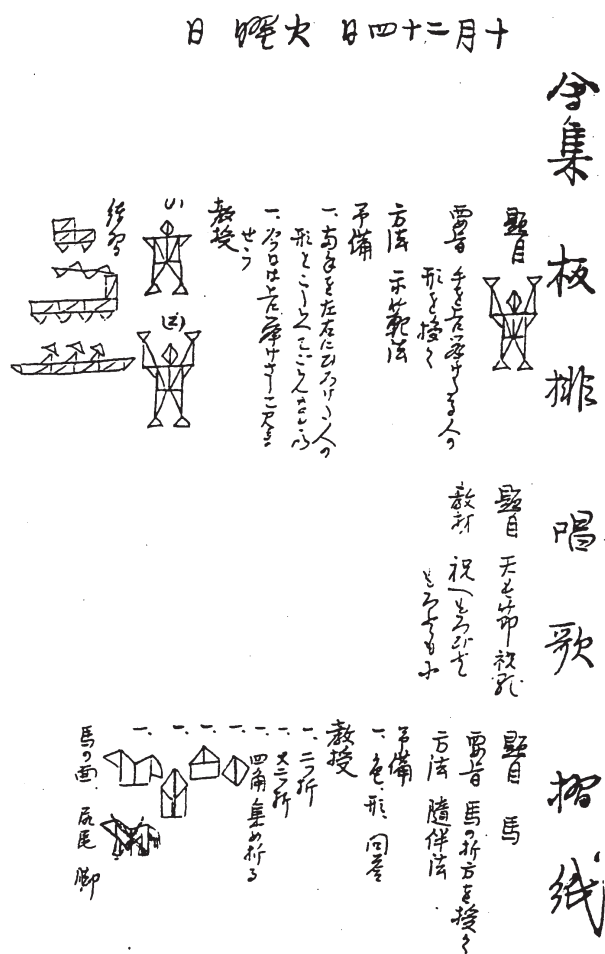 十月二十四日 火曜日
会集
板排
題目
要旨 手を上に挙げたる人の
形を授く
方法 示範法
予備
一、両手を左右にひろげた人の
形をこしらへてごらんなさい
一、今日は上に挙げさしこ
せう
教授
(一)
(二)
練習
唱歌
題目 天長節祝歌
教材 祝へもろびと
もろともに
摺紙
題目 馬
要旨 馬の折方を授く
方法 随伴法
予備
一、色、形、問答
教授
一、二つ折
一、又二つ折
一、四角集め折る
一、
一、
一、
一、
馬の面、尻尾 脚